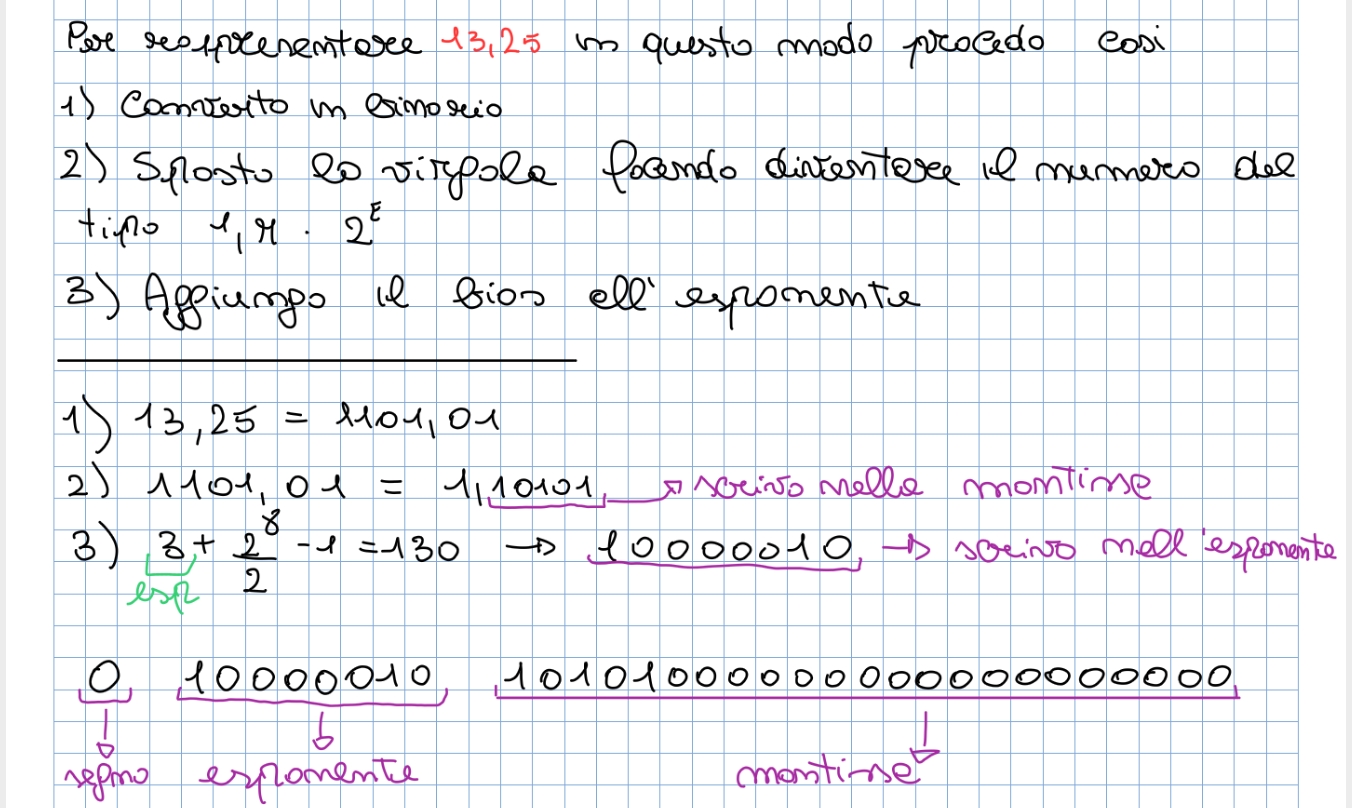 Per rappresentare 13,25 in questo modo procedo così
1) Converto in binario
2) Sposto la virgola facendo diventare il numero del
tipo 1,M · 2^E
3) Aggiungo il bias all'esponente
1) 13,25 = 1101,01
2) 1101,01 = 1,10101 → scrivo nella mantissa
3) 3 + 2^8/2 - 1 = 130 → 10000010 → scrivo nell'esponente
esp
0 10000010 10101000000000000000000
segno esponente mantissa